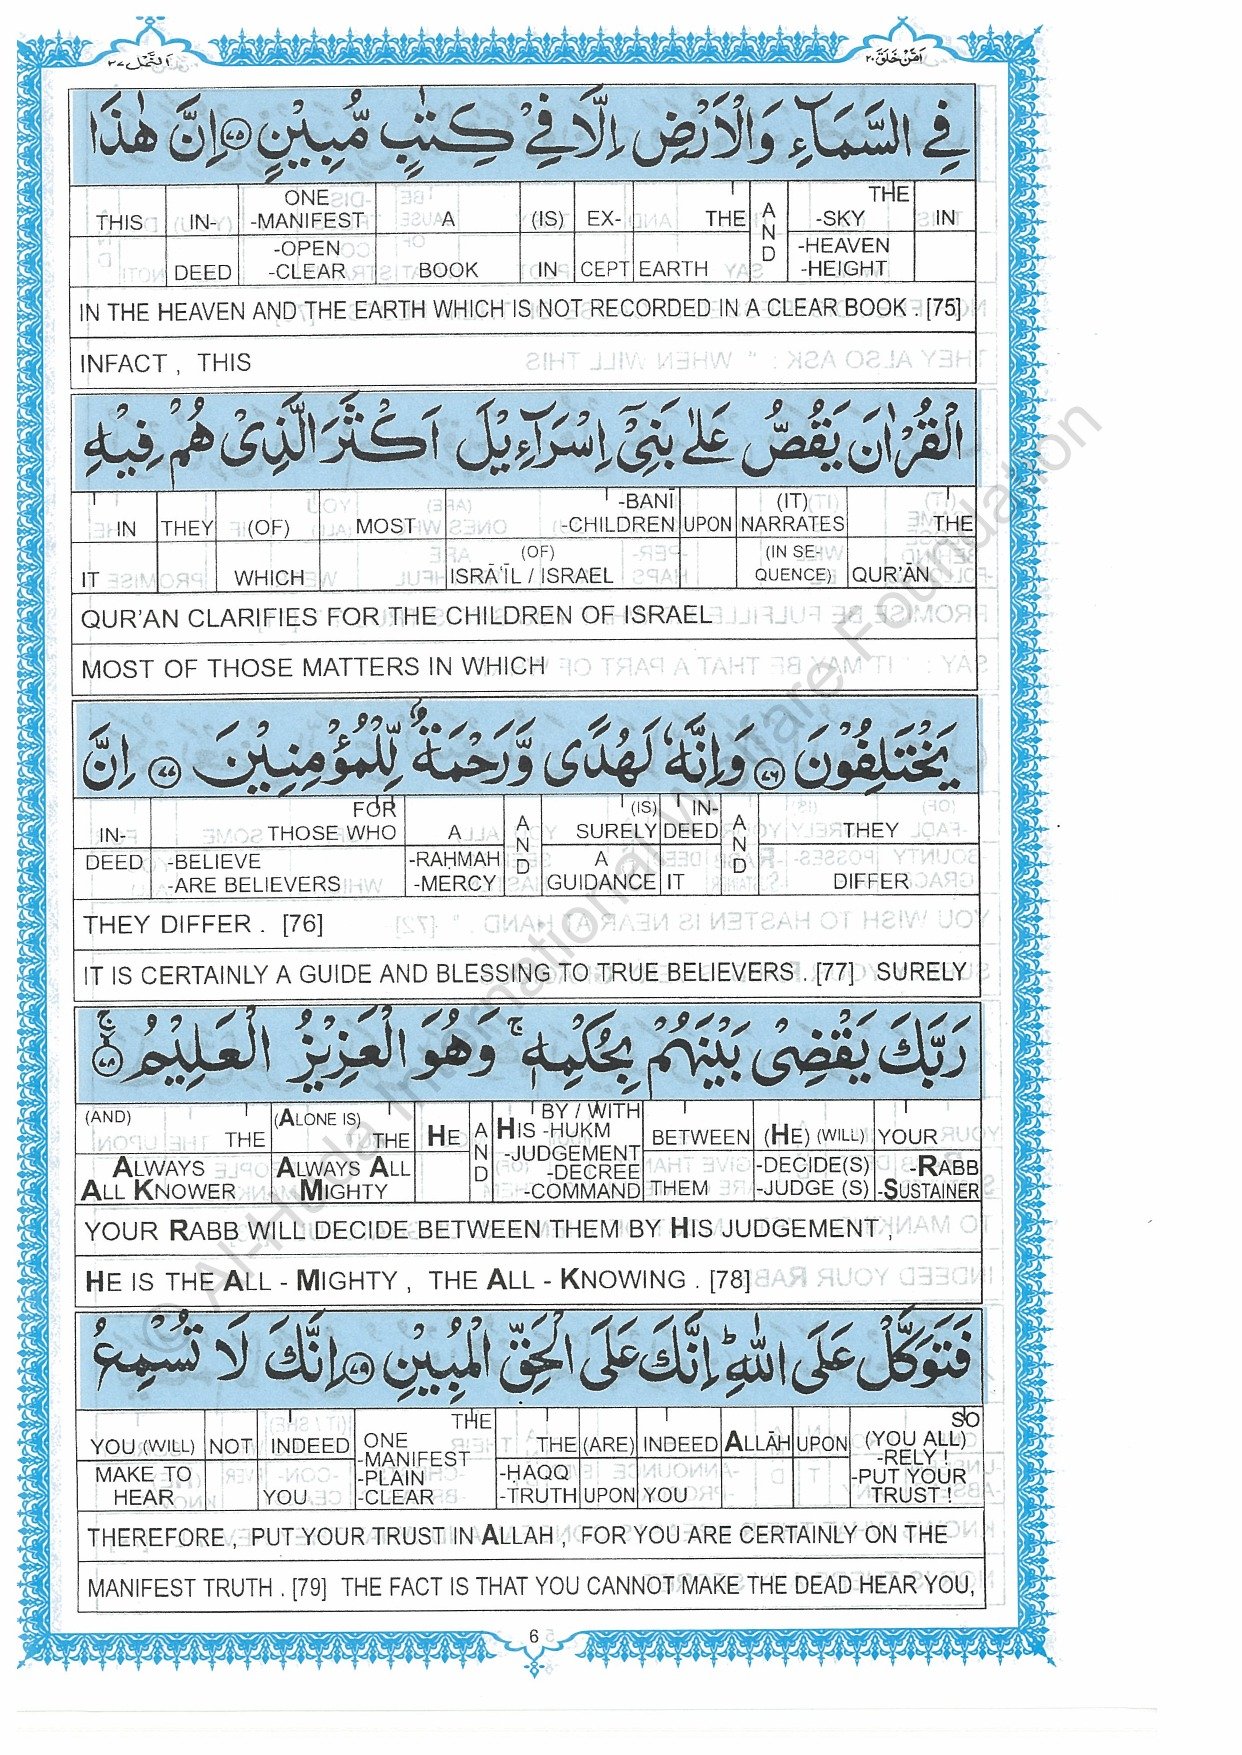 النَّمْل ٢٧
اَمَّنْ خَلَقَ ٢٠
فِي السَّمَآءِ وَالْاَرْضِ اِلَّا فِيْ كِتٰبٍ مُّبِيْنٍ ﴿٧٥﴾ اِنَّ هٰذَا
THIS IN- ONE -MANIFEST A (IS) EX- THE AND THE -SKY IN
DEED -OPEN -CLEAR BOOK IN CEPT EARTH -HEAVEN -HEIGHT
IN THE HEAVEN AND THE EARTH WHICH IS NOT RECORDED IN A CLEAR BOOK . [75]
INFACT , THIS
الْقُرْاٰنَ يَقُصُّ عَلٰى بَنِيْٓ اِسْرَآءِيْلَ اَكْثَرَ الَّذِيْ هُمْ فِيْهِ
IN THEY (OF) MOST -BANĪ -CHILDREN UPON (IT) NARRATES THE
IT WHICH (OF) ISRĀ'ĪL / ISRAEL (IN SE- QUENCE) QUR'ĀN
QUR'AN CLARIFIES FOR THE CHILDREN OF ISRAEL
MOST OF THOSE MATTERS IN WHICH
يَخْتَلِفُوْنَ ﴿٧٦﴾ وَاِنَّهٗ لَهُدًى وَّرَحْمَةٌ لِّلْمُؤْمِنِيْنَ ﴿٧٧﴾ اِنَّ
IN- FOR THOSE WHO A AND (IS) SURELY IN- DEED AND THEY
DEED -BELIEVE -ARE BELIEVERS -RAHMAH -MERCY A GUIDANCE IT DIFFER
THEY DIFFER . [76]
IT IS CERTAINLY A GUIDE AND BLESSING TO TRUE BELIEVERS . [77] SURELY
رَبَّكَ يَقْضِيْ بَيْنَهُمْ بِحُكْمِهٖ ۚ وَهُوَ الْعَزِيْزُ الْعَلِيْمُ ﴿٧٨﴾ ۚ
(AND) THE (ALONE IS) THE HE AND BY / WITH HIS -HUKM BETWEEN (HE) (WILL) YOUR
ALWAYS ALL KNOWER ALWAYS ALL MIGHTY -JUDGEMENT -DECREE -COMMAND THEM -DECIDE(S) -JUDGE (S) -RABB -SUSTAINER
YOUR RABB WILL DECIDE BETWEEN THEM BY HIS JUDGEMENT ,
HE IS THE ALL - MIGHTY , THE ALL - KNOWING . [78]
فَتَوَكَّلْ عَلَى اللّٰهِ ؕ اِنَّكَ عَلَى الْحَقِّ الْمُبِيْنِ ﴿٧٩﴾ اِنَّكَ لَا تُسْمِعُ
YOU (WILL) NOT INDEED THE ONE -MANIFEST THE (ARE) INDEED ALLĀH UPON SO (YOU ALL)
MAKE TO HEAR YOU -PLAIN -CLEAR -ḤAQQ -TRUTH UPON YOU -RELY ! -PUT YOUR TRUST !
THEREFORE , PUT YOUR TRUST IN ALLAH , FOR YOU ARE CERTAINLY ON THE
MANIFEST TRUTH . [79] THE FACT IS THAT YOU CANNOT MAKE THE DEAD HEAR YOU,
6
© Al-Huda International Welfare Foundation